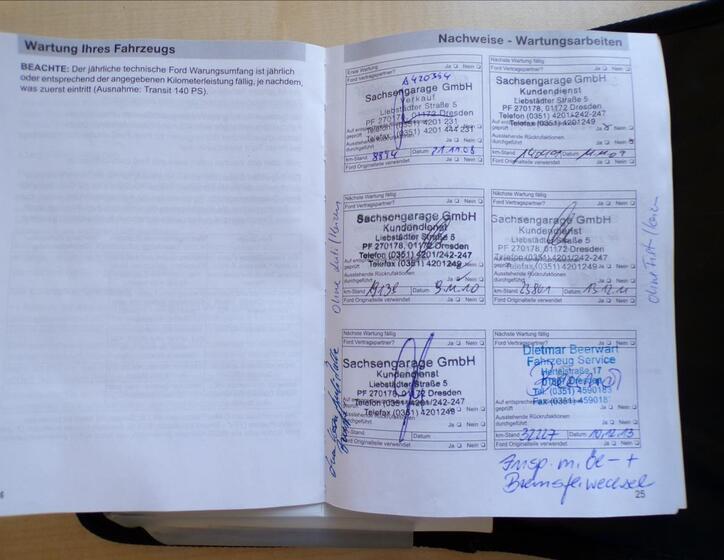 Wartung Ihres Fahrzeugs
BEACHTE: Der jährliche technische Ford Warungsumfang ist jährlich
oder entsprechend der angegebenen Kilometerleistung fällig, je nachdem,
was zuerst eintritt (Ausnahme: Transit 140 PS).
Nachweise - Wartungsarbeiten
Erste Wartung Ja Nein
Ford Vertragspartner?
A420354
Sachsengarage GmbH
Verkauf
Liebstädter Straße 5
PF 270178, 01172 Dresden
Telefon (0351) 4201 231
Telefax (0351) 4201 444 231
Ausstehende Rückrufaktionen
durchgeführt Ja Nein
km-Stand 8894 Datum 21.11.08
Ford Originalteile verwendet Ja Nein
Nächste Wartung fällig
Ford Vertragspartner? Ja Nein
Sachsengarage GmbH
Kundendienst
Liebstädter Straße 5
PF 270178, 01172 Dresden
Telefon (0351) 4201/242-247
Telefax (0351) 4201249
geprüft Ja Nein
Ausstehende Rückrufaktionen
durchgeführt Ja Nein
km-Stand Datum
Ford Originalteile verwendet Ja Nein
Nächste Wartung fällig
Ford Vertragspartner? Ja Nein
Sachsengarage GmbH
Kundendienst
Liebstädter Straße 5
PF 270178, 01172 Dresden
Telefon (0351) 4201/242-247
Telefax (0351) 4201249
geprüft Ja Nein
Ausstehende Rückrufaktionen
durchgeführt Ja Nein
km-Stand Datum 9.11.10
Ford Originalteile verwendet Ja Nein
ohne
Nächste Wartung fällig
Ford Vertragspartner? Ja Nein
Sachsengarage GmbH
Kundendienst
Liebstädter Straße 5
PF 270178, 01172 Dresden
Telefon (0351) 4201/242-247
Telefax (0351) 4201249
geprüft Ja Nein
Ausstehende Rückrufaktionen
durchgeführt Ja Nein
km-Stand 23801 Datum 13.12.11
Ford Originalteile verwendet Ja Nein
ohne
Nächste Wartung fällig
Ford Vertragspartner? Ja Nein
Sachsengarage GmbH
Kundendienst
Liebstädter Straße 5
PF 270178, 01172 Dresden
Telefon (0351) 4201/242-247
Telefax (0351) 4201249
geprüft Ja Nein
Ausstehende Rückrufaktionen
durchgeführt Ja Nein
km-Stand Datum
Ford Originalteile verwendet Ja Nein
Nächste Wartung fällig
Ford Vertragspartner? Ja Nein
Dietmar Beerwart
Fahrzeug Service
Hertelstraße 17
Dresden
Tel. (0351) 4590183
Fax (0351) 4590181
geprüft Ja Nein
Ausstehende Rückrufaktionen
durchgeführt Ja Nein
km-Stand 32227 Datum 10.12.13
Ford Originalteile verwendet Ja Nein
Insp. m. Öl- +
Bremsfl.wechsel
25